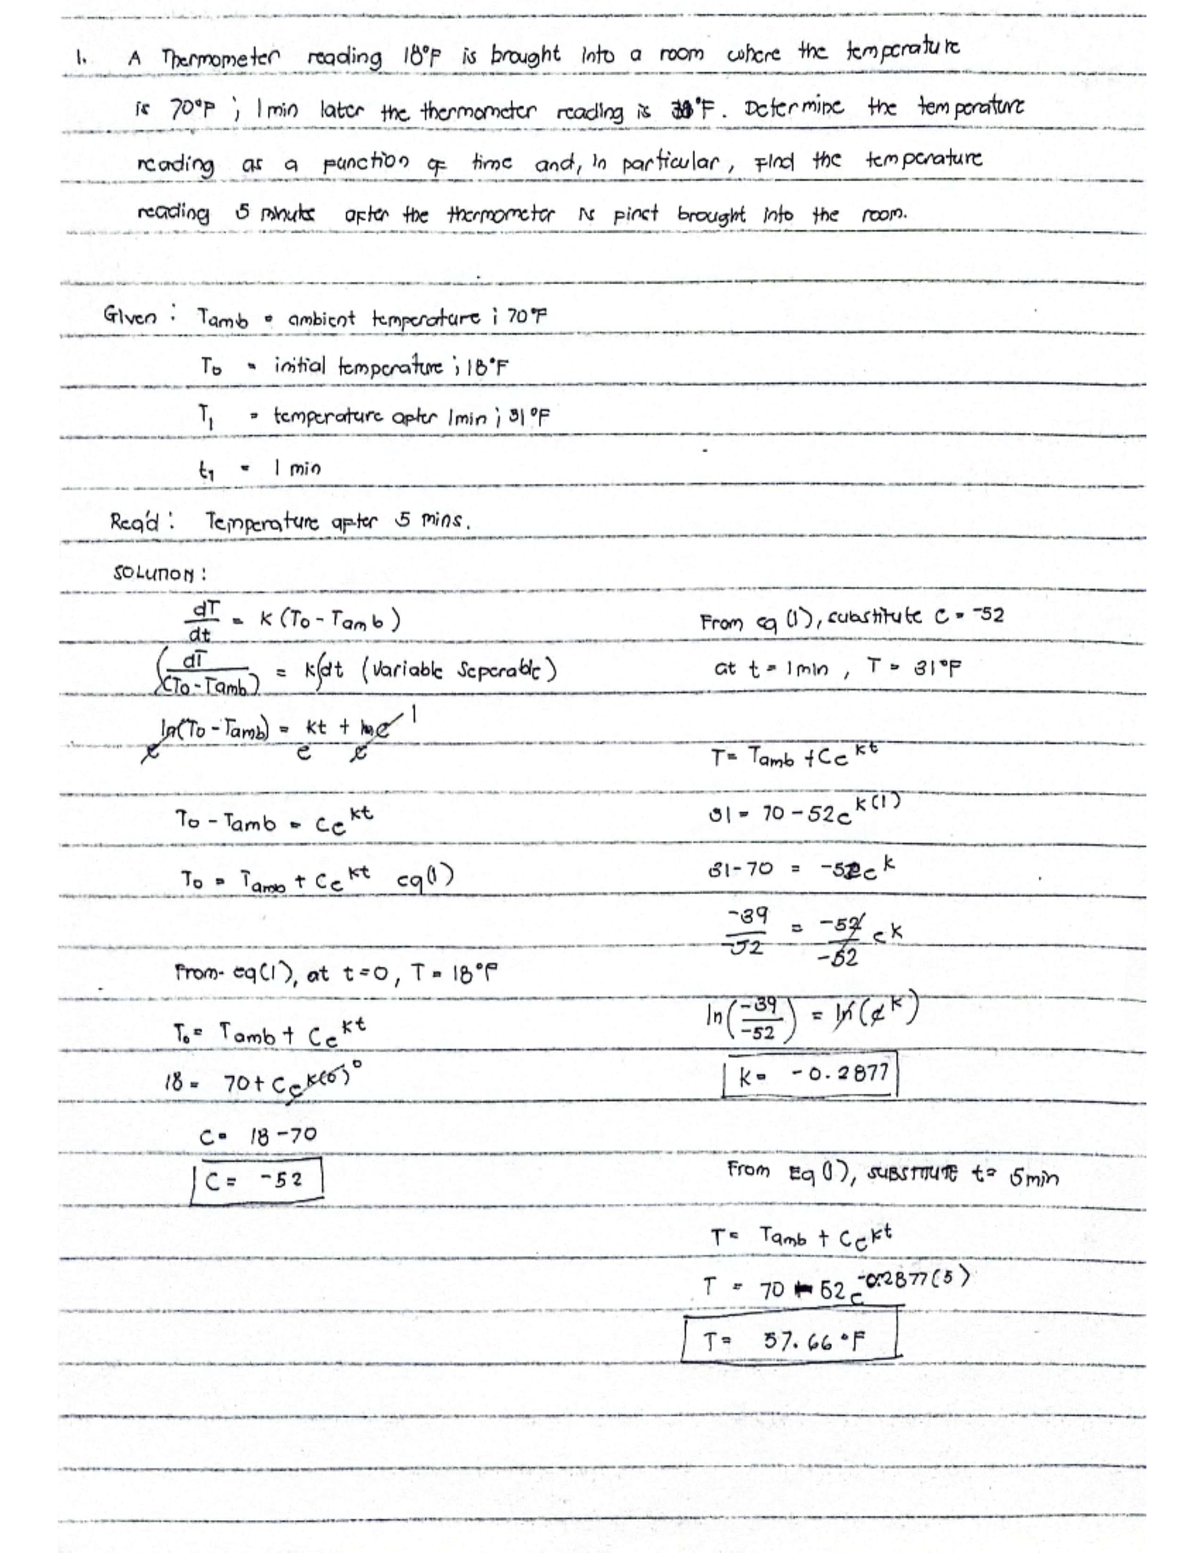 1. A Thermometer reading 18°F is brought into a room where the temperature
is 70°F ; 1 min later the thermometer reading is 31°F. Determine the temperature
reading as a function of time and, in particular, find the temperature
reading 5 minuts after the thermometer is first brought into the room.
Given : Tamb = ambient temperature ; 70°F
To = initial temperature ; 18°F
T1 = temperature after 1min ; 31°F
t1 = 1 min
Req'd : Temperature after 5 mins.
SOLUTION :
dT/dt = K (To - Tamb)
∫ dT/(To - Tamb) = K∫dt (Variable Seperable)
ln(To - Tamb) = kt + lnc 1
e e e
To - Tamb = Ce^kt
To = Tamb + Ce^kt eq(1)
From eq(1), at t=0, T = 18°F
To = Tamb + Ce^kt
18 = 70 + Ce^k(0) 0
C = 18 - 70
C = -52
From eq (1), substitute C = -52
at t = 1min , T = 31°F
T = Tamb + Ce^kt
31 = 70 - 52e^k(1)
31-70 = -52e^k
-39/-52 = -52/-52 e^k
ln(-39/-52) = ln(e^k)
k = -0.2877
From Eq (1), SUBSTITUTE t = 5min
T = Tamb + Ce^kt
T = 70 - 52e^-0.2877(5)
T = 57.66 °F